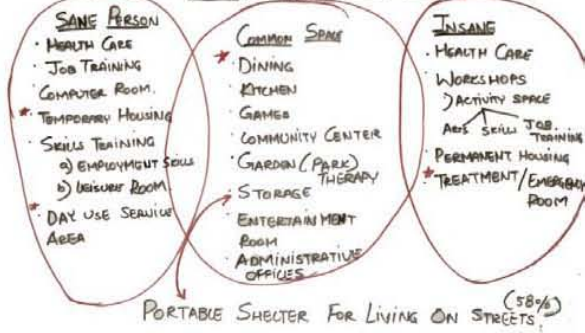 SANE PERSON
· HEALTH CARE
· JOB TRAINING
· COMPUTER ROOM.
* · TEMPORARY HOUSING
· SKILLS TRAINING
a) EMPLOYMENT SKILLS
b) LEISURE ROOM.
* · DAY USE SERVICE
AREA
COMMON SPACE
* · DINING
· KITCHEN
· GAMES
· COMMUNITY CENTER
· GARDEN (PARK)
THERAPY
· STORAGE
· ENTERTAINMENT
ROOM
· ADMINISTRATIVE
OFFICES
INSANE
· HEALTH CARE
· WORKSHOPS
ACTIVITY SPACE
ARTS SKILLS JOB
TRAINING
· PERMANENT HOUSING
* · TREATMENT/EMERGENCY
ROOM
PORTABLE SHELTER FOR LIVING ON STREETS. (58%)